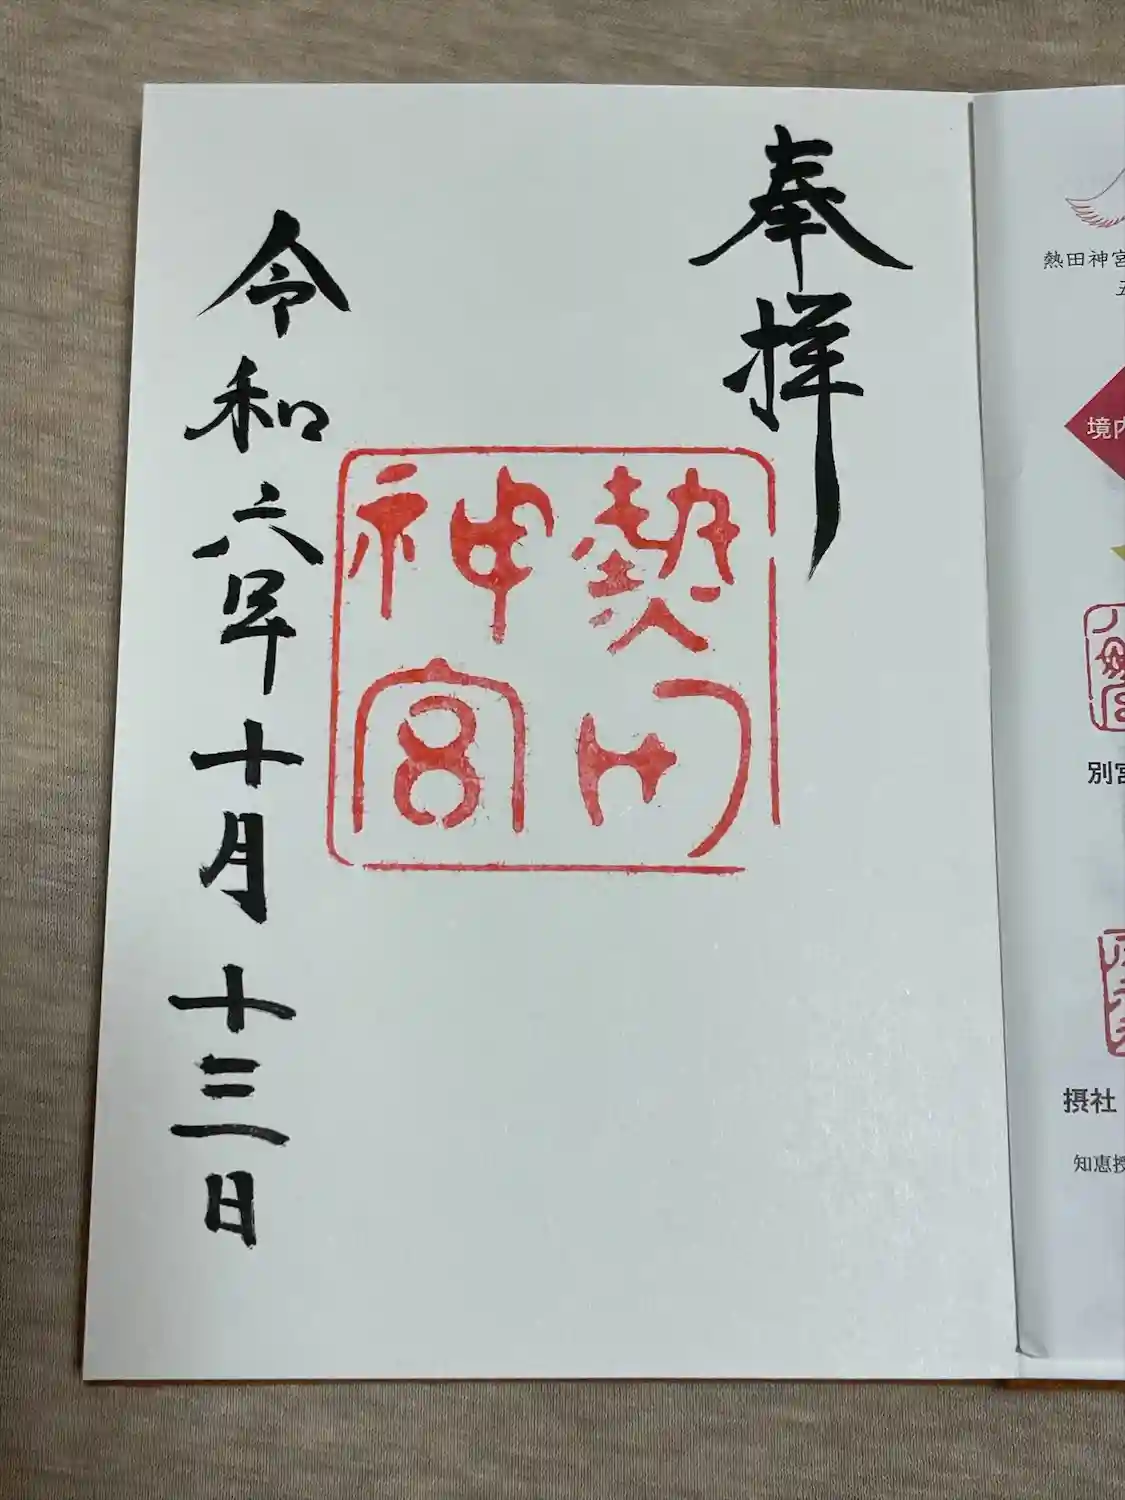 奉拝
熱田
神宮
令和六年十月十三日
熱田神宮
境内
別宮
摂社
知恵授